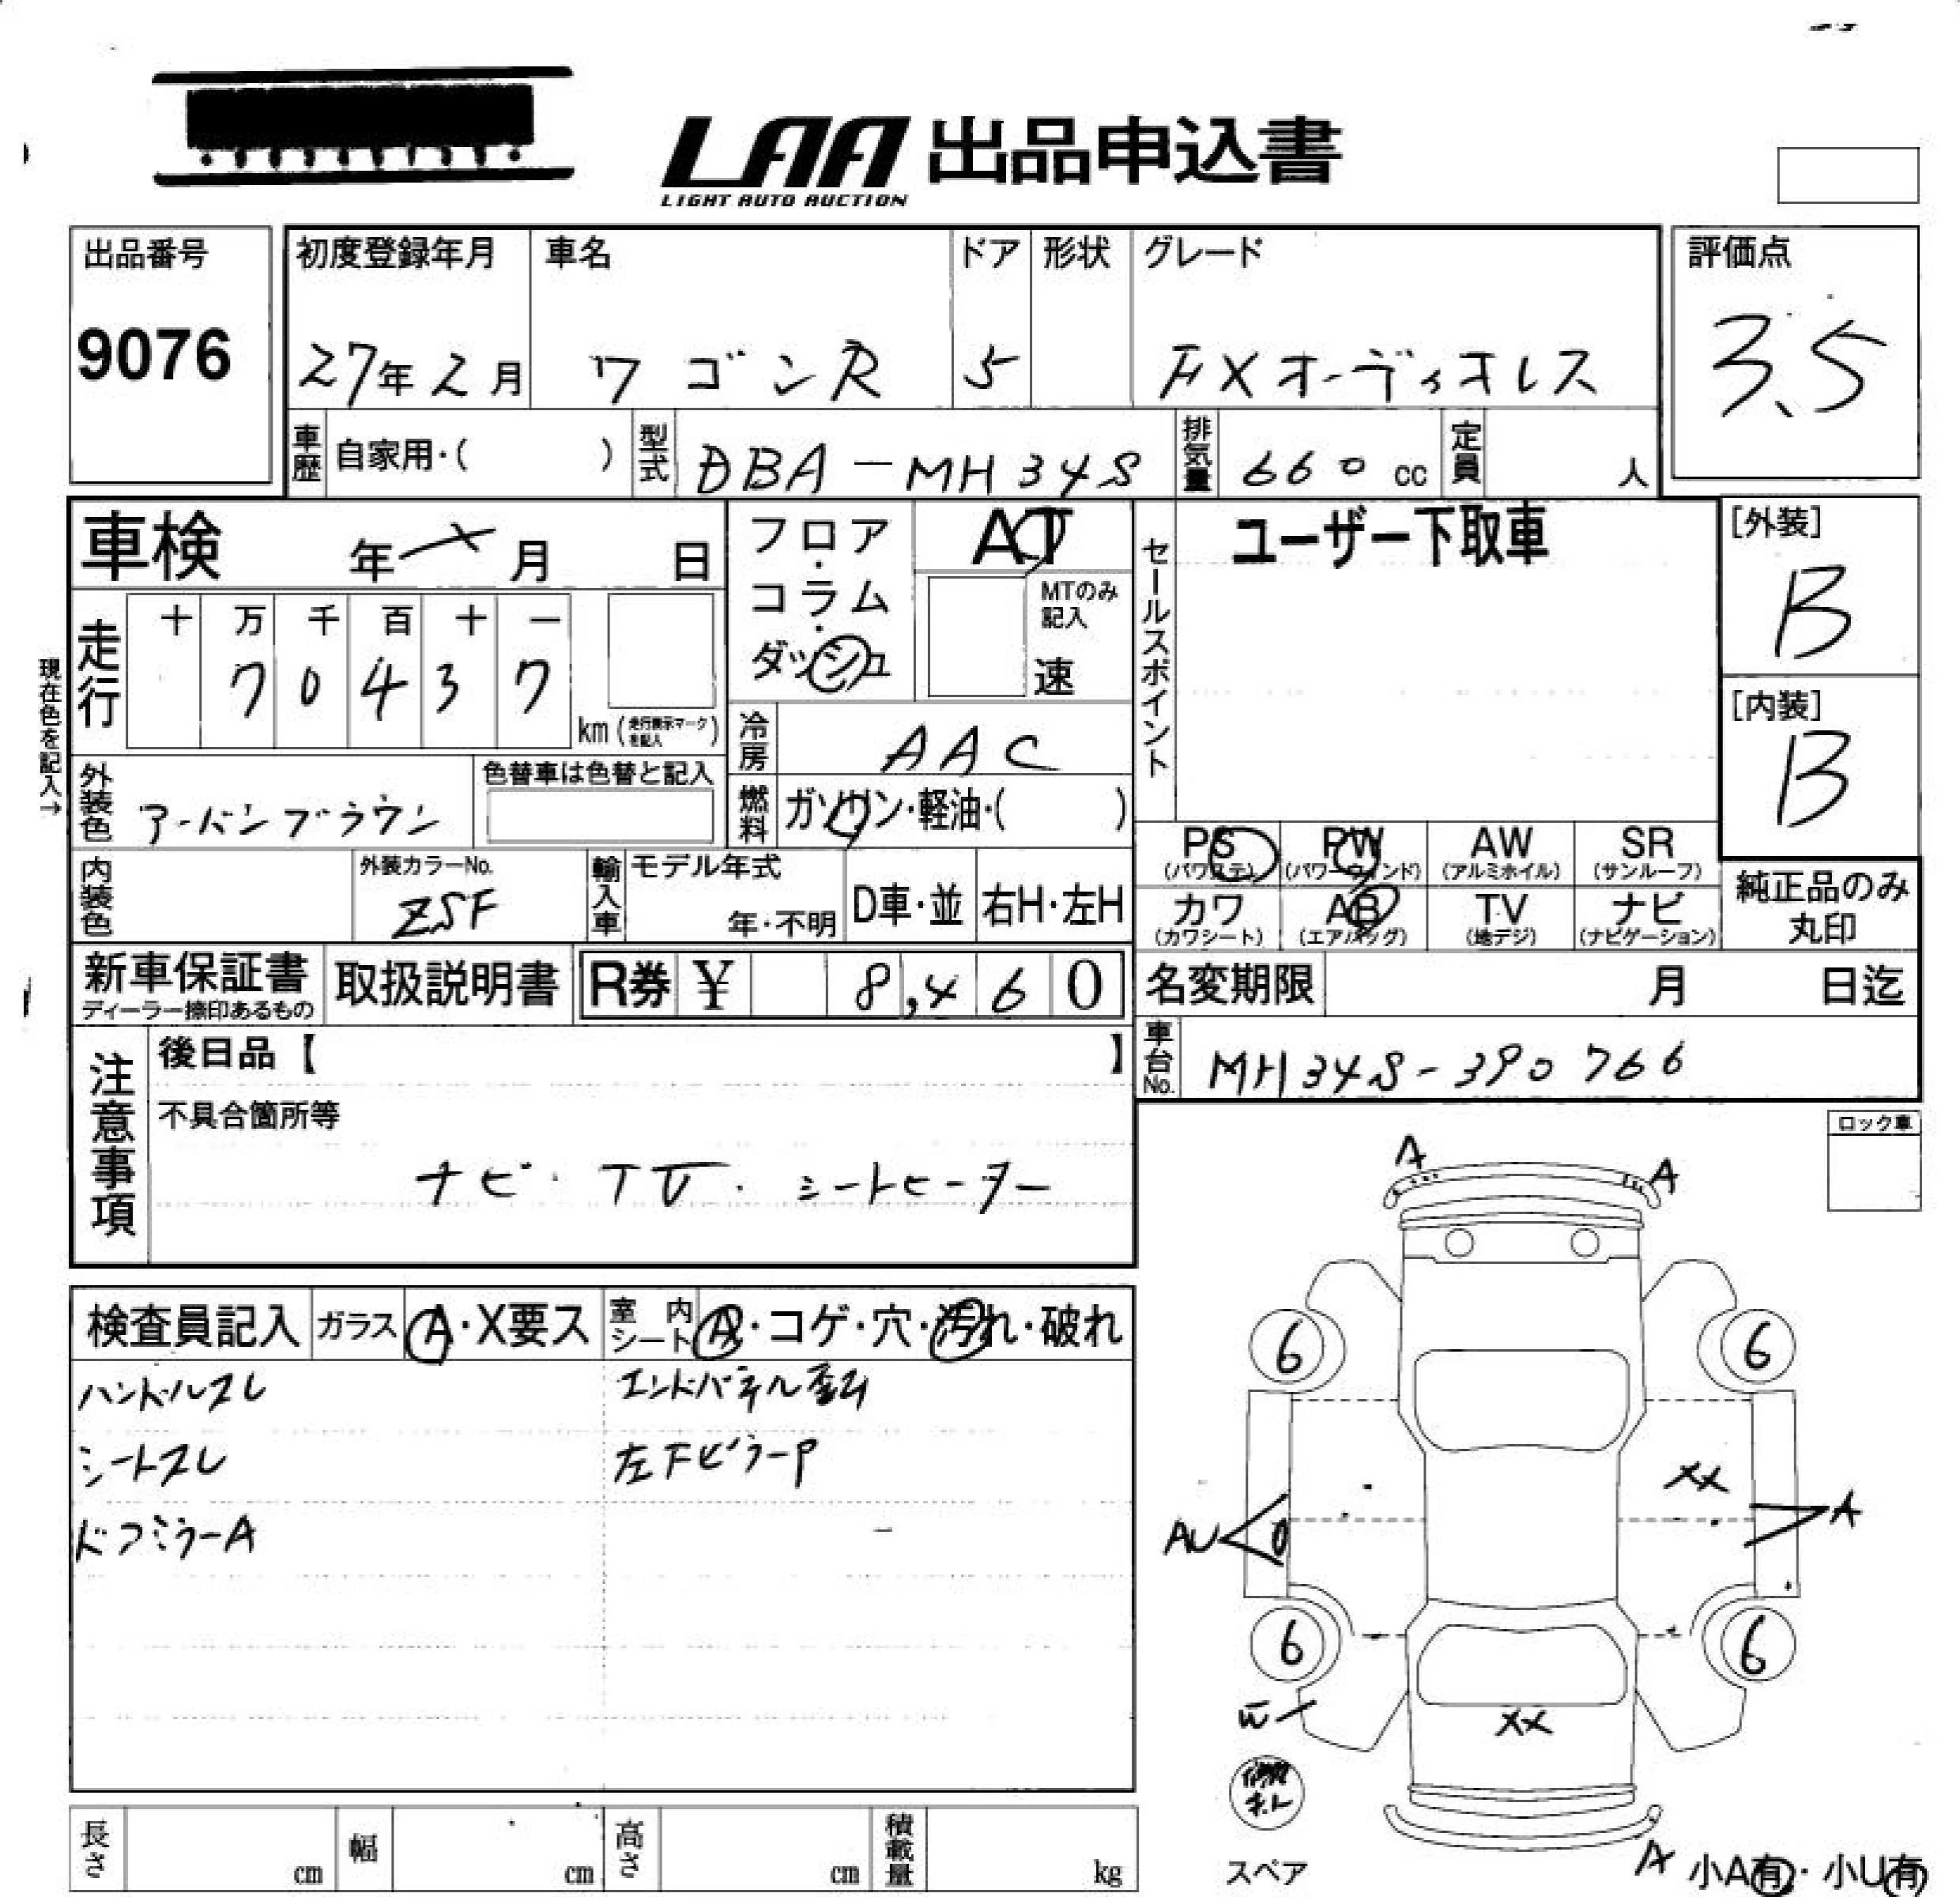 LAA 出品申込書
LIGHT AUTO AUCTION
出品番号
9076
初度登録年月
27年2月
車名
ワゴンR
ドア
5
形状
グレード
FXオーディオレス
評価点
3.5
車歴 自家用・( )
型式 DBA-MH34S
排気量 660 cc
定員 人
車検 年 月 日
フロア・コラム・ダッシュ
AT
MTのみ記入
速
セールスポイント
ユーザー下取車
[外装]
B
[内装]
B
現在色を記入→
走行
十 万 千 百 十 一
7 0 4 3 7
km (走行表示マークを記入)
冷房 AAC
外装色 アーバンブラウン
色替車は色替と記入
燃料 ガソリン・軽油・( )
PS (パワステ)
PW (パワーウィンド)
AW (アルミホイル)
SR (サンルーフ)
カワ (カワシート)
AB (エアバッグ)
TV (地デジ)
ナビ (ナビゲーション)
純正品のみ丸印
内装色
外装カラーNo.
ZSF
輸入車 モデル年式
年・不明
D車・並
右H・左H
新車保証書
ディーラー捺印あるもの
取扱説明書
R券 ¥ 8,460
名変期限 月 日迄
車台No. MH34S-390766
注意事項
後日品【 】
不具合箇所等
ナビ・TV・シートヒーター
ロック車
検査員記入
ガラス A・X要ス
室内シート A・コゲ・穴・汚れ・破れ
ハンドルスレ
エンドパネル歪み
シートスレ
左下ピラーP
ドアミラーA
A
A
6
6
XX
AU
A
6
6
XX
スペア
A
小A有・小U有
長さ cm
幅 cm
高さ cm
積載量 kg